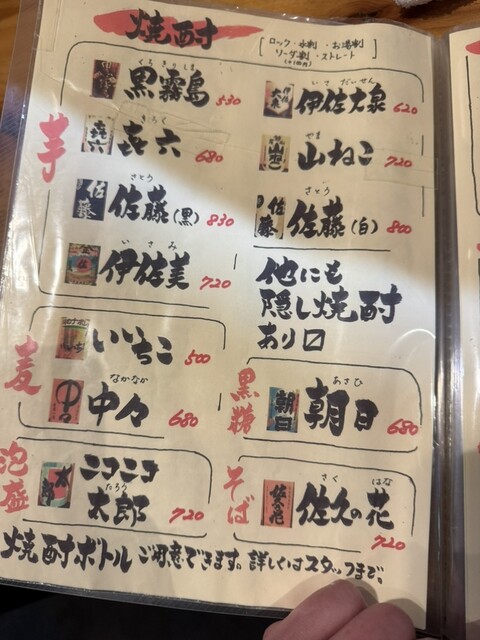 焼酎
ロック・水割・お湯割
ソーダ割・ストレート
芋
くろきりしま
黒霧島 530
いさ だいせん
伊佐大泉 620
きろく
㐂六 680
やま
山ねこ 720
さとう
佐藤(黒) 830
さとう
佐藤(白) 800
いさみ
伊佐美 720
他にも
隠し焼酎
あり〼
麦
いいちこ 500
なかなか
中々 680
黒糖
あさひ
朝日 680
泡盛
ニコニコ
たろう
太郎 720
そば
さく はな
佐久の花 720
焼酎ボトル ご用意できます。詳しくはスタッフまで、